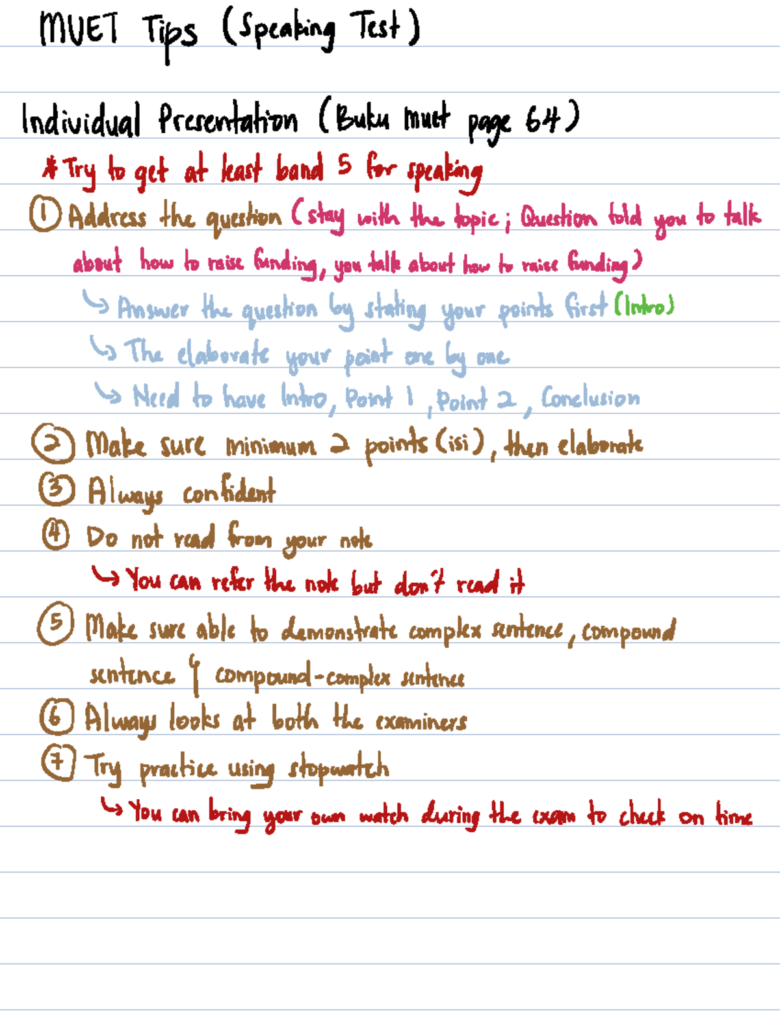 MUET Tips (Speaking Test)
Individual Presentation (Buku muet page 64)
* Try to get at least band 5 for speaking
① Address the question (stay with the topic; Question told you to talk
about how to raise funding, you talk about how to raise funding)
↳ Answer the question by stating your points first (Intro)
↳ The elaborate your point one by one
↳ Need to have Intro, Point 1, Point 2, Conclusion
② Make sure minimum 2 points (isi), then elaborate
③ Always confident
④ Do not read from your note
↳ You can refer the note but don't read it
⑤ Make sure able to demonstrate complex sentence, compound
sentence & compound-complex sentence
⑥ Always looks at both the examiners
⑦ Try practice using stopwatch
↳ You can bring your own watch during the exam to check on time